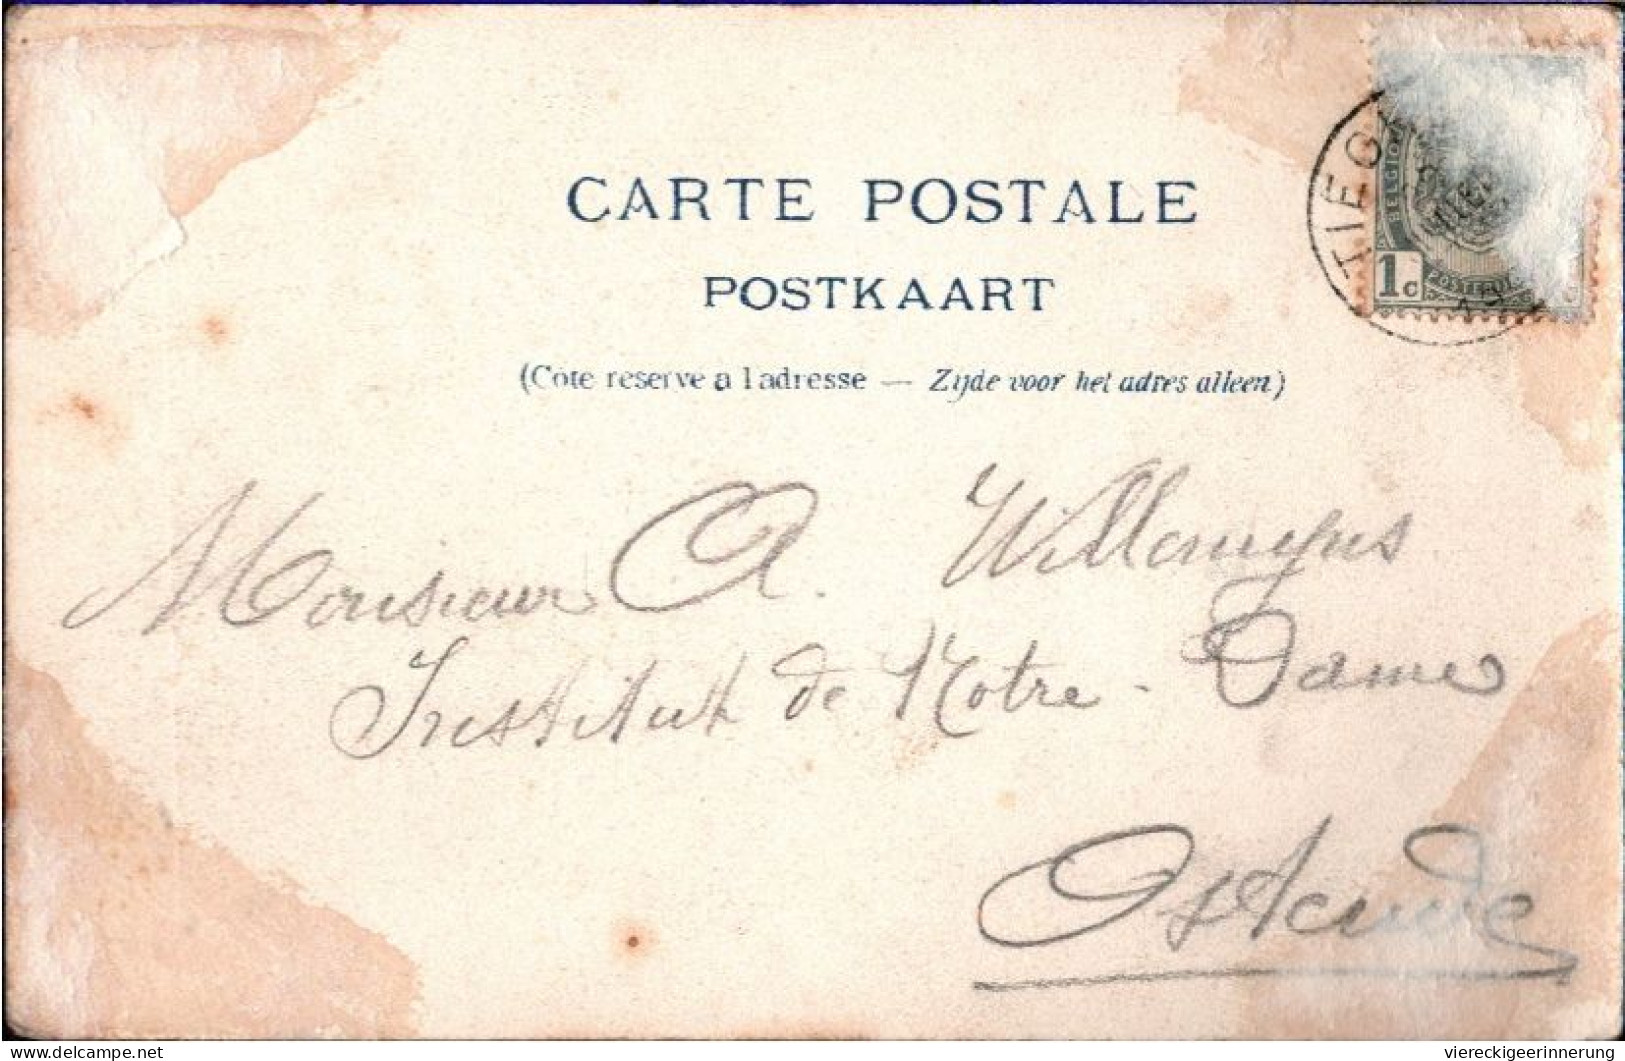 CARTE POSTALE
POSTKAART
(Côte réservé à l'adresse — Zijde voor het adres alleen)
TIEG
BELGIQ
1c
POSTERIJ
Monsieur A. Willemyns
Institut de Notre-Dame
Ostende
delcampe.net
viereckigeerinnerung